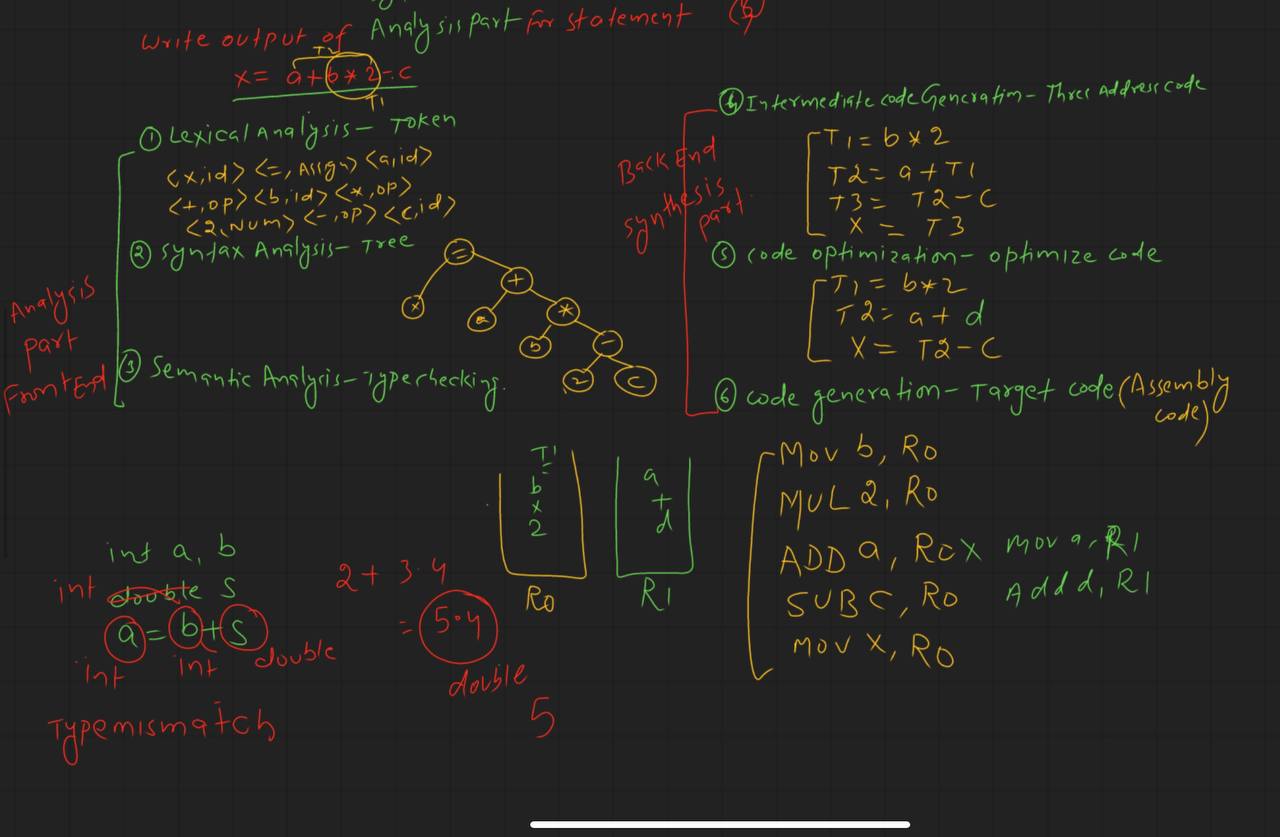 Write output of Analysis part for statement
T2
x = a+b*2-c
T1
① Lexical Analysis - Token
<x,id> <=, Assign> <a,id>
<+,op> <b,id> <*,op>
<2,Num> <-,op> <c,id>
② Syntax Analysis - Tree
=
x +
a *
b -
2 c
③ Semantic Analysis - Typechecking.
Analysis
part
Front End
④ Intermediate code Generation - Three Address code
T1 = b * 2
T2 = a + T1
T3 = T2 - C
X = T3
⑤ code optimization - optimize code
T1 = b*2
T2 = a + d
X = T2 - C
⑥ code generation - Target code (Assembly
code)
Back End
synthesis
part
Mov b, R0
MUL 2, R0
ADD a, R0 X Mov a, R1
SUB C, R0 Add d, R1
MOV X, R0
T1
=
b
x
2
R0
a
+
d
R1
int a, b
int double s
a = b + s
int int double
Type mismatch
2 + 3.4
= 5.4
double
5